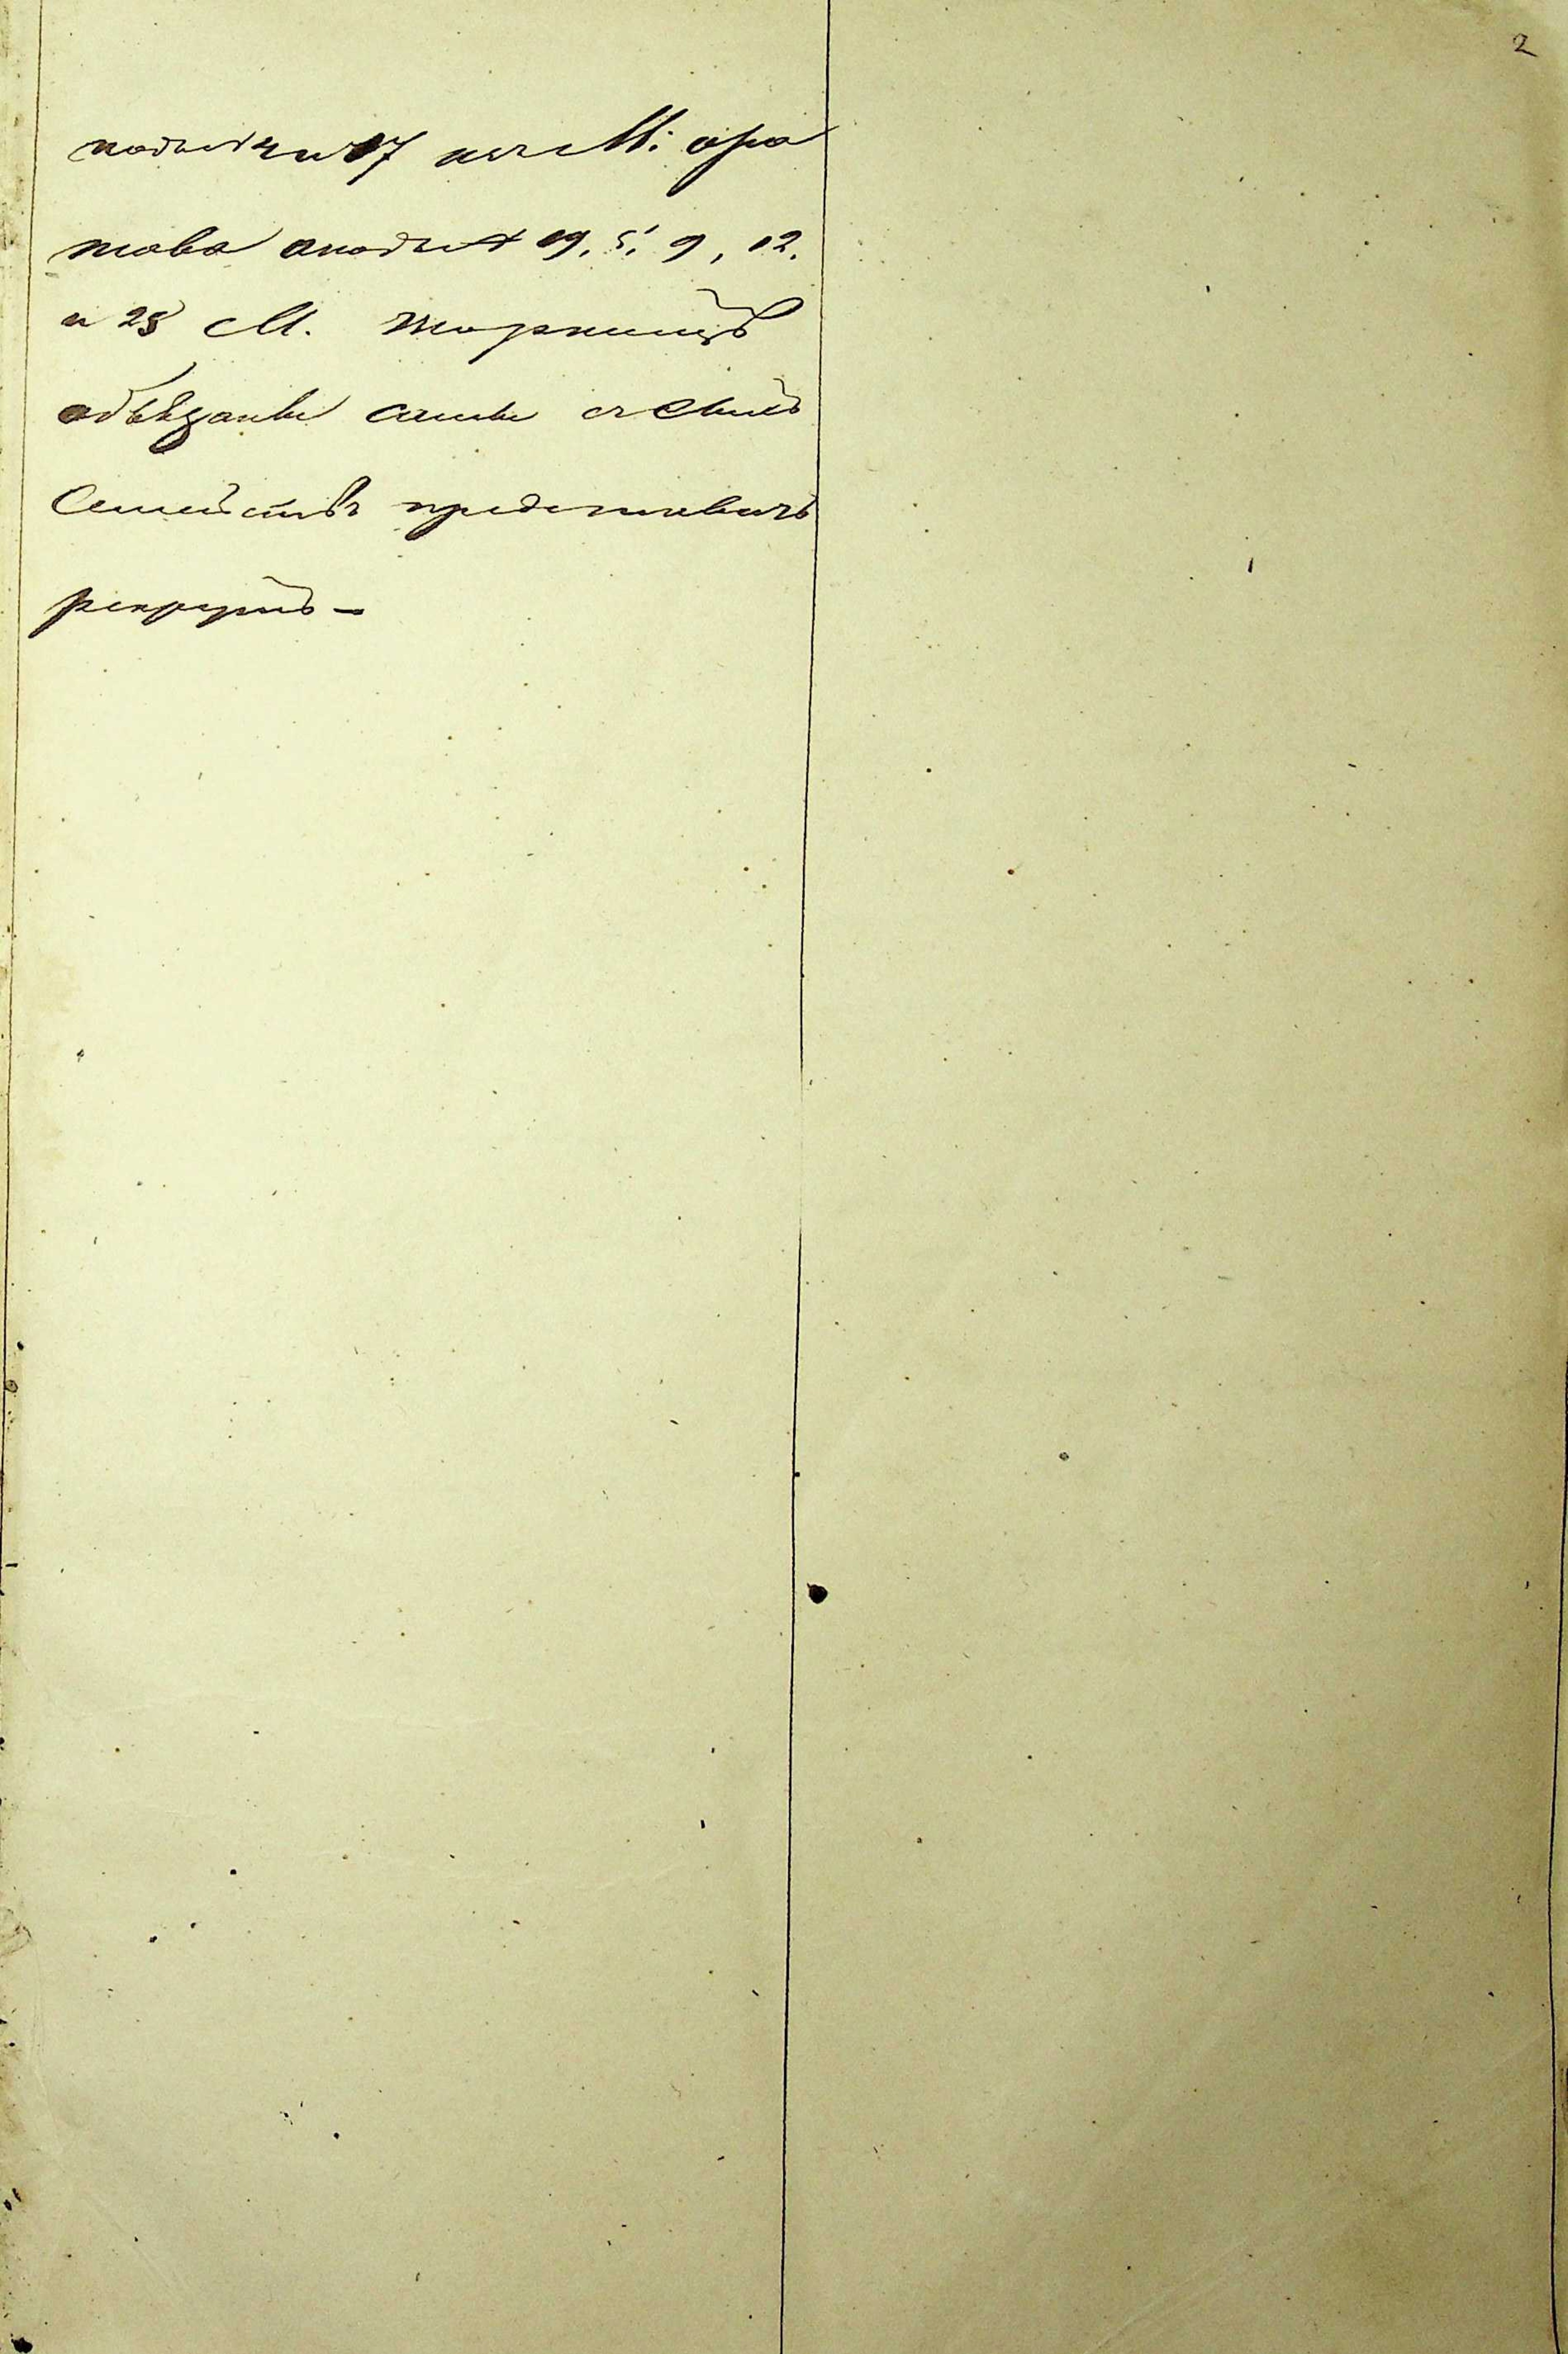 2
подъ № 4 и 17 изъ М: ора
това а подъ № 19. 5. 9, 12.
и 28 М.
обязаны сами съ Своихъ
Семействъ представить
рекрутъ —